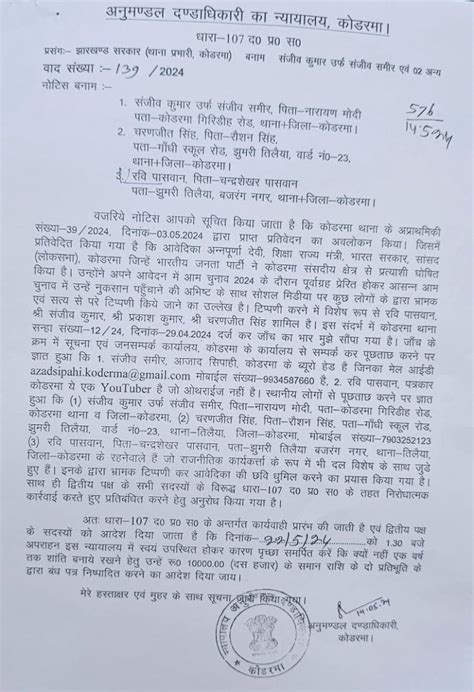 अनुमण्डल दण्डाधिकारी का न्यायालय, कोडरमा।
धारा–107 द० प्र० स०
प्रसंगः– झारखण्ड सरकार (थाना प्रभारी, कोडरमा) बनाम संजीव कुमार उर्फ संजीव समीर एवं 02 अन्य
वाद संख्या :– 139 /2024
नोटिस बनाम :–
1. संजीव कुमार उर्फ संजीव समीर, पिता–नारायण मोदी
पता–कोडरमा गिरिडीह रोड, थाना+जिला–कोडरमा।
576
14.5.24
2. चरणजीत सिंह, पिता–रौशन सिंह,
पता–गाँधी स्कूल रोड, झुमरी तिलैया, वार्ड नं०–23,
थाना+जिला–कोडरमा।
3. रवि पासवान, पिता–चन्द्रशेखर पासवान
पता–झुमरी तिलैया, बजरंग नगर, थाना+जिला–कोडरमा।
वजरिये नोटिस आपको सूचित किया जाता है कि कोडरमा थाना के अप्राथमिकी
संख्या–39/2024, दिनांक–03.05.2024 द्वारा प्राप्त प्रतिवेदन का अवलोकन किया। जिसमें
प्रतिवेदित किया गया है कि आवेदिका अन्नपूर्णा देवी, शिक्षा राज्य मंत्री, भारत सरकार, सांसद
(लोकसभा), कोडरमा जिन्हें भारतीय जनता पार्टी ने कोडरमा संसदीय क्षेत्र से प्रत्याशी घोषित
किया है। उन्होंने अपने आवेदन में आम चुनाव 2024 के दौरान पूर्वाग्रह प्रेरित होकर आसन्न आम
चुनाव में उन्हें नुकसान पहुँचाने की अभिष्ट के साथ सोशल मिडीया पर कुछ लोगों के द्वारा भ्रामक
एवं सत्य से परे टिप्पणी किये जाने का उल्लेख है। टिप्पणी करने में विशेष रूप से रवि पासवान,
श्री संजीव कुमार, श्री प्रकाश कुमार, श्री चरणजीत सिंह शामिल है। इस संदर्भ में कोडरमा थाना
सन्हा संख्या–12/24, दिनांक–29.04.2024 दर्ज कर जाँच का भार मुझे सौंपा गया है। जाँच के
क्रम में सूचना एवं जनसम्पर्क कार्यालय, कोडरमा के कार्यालय से सम्पर्क कर पूछताछ करने पर
ज्ञात हुआ कि 1. संजीव समीर, आजाद सिपाही, कोडरमा के ब्यूरो हेड है जिनका मेल आईडी
azadsipahi.koderma@gmail.com मोबाईल संख्या–9934587660 है, 2. रवि पासवान, पत्रकार
कोडरमा ये एक YouTuber है जो ओथराईज नहीं है। स्थानीय लोगों से पूछताछ करने पर ज्ञात
हुआ कि (1) संजीव कुमार उर्फ संजीव समीर, पिता–नारायण मोदी, पता–कोडरमा गिरिडीह रोड,
कोडरमा थाना व जिला–कोडरमा, (2) चरणजीत सिंह, पिता–रौशन सिंह, पता–गाँधी स्कूल रोड,
झुमरी तिलैया, वार्ड नं०–23, थाना–तिलैया, जिला–कोडरमा, मोबाईल संख्या–7903252123
(3) रवि पासवान, पिता–चन्द्रशेखर पासवान, पता–झुमरी तिलैया बजरंग नगर, थाना–तिलैया,
जिला–कोडरमा के रहनेवाले हैं जो राजनीतिक कार्यकर्त्ता के रूप में भी दल विशेष के साथ जुड़े
हुए हैं। इनके द्वारा भ्रामक टिप्पणी कर आवेदिका की छवि धुमिल करने का प्रयास किया गया है।
साथ ही द्वितीय पक्ष के सभी सदस्यों के विरूद्ध धारा–107 द० प्र० स० के तहत निरोधात्मक
कार्रवाई करते हुए प्रतिबंधित करने हेतु अनुरोध किया गया है।
अतः धारा–107 द० प्र० स० के अन्तर्गत कार्यवाही प्रारंभ की जाती है एवं द्वितीय पक्ष
के सदस्यों को आदेश दिया जाता है कि दिनांक–22/5/24 को 1.30 बजे
अपराहन इस न्यायालय में स्वयं उपस्थित होकर कारण पृच्छा समर्पित करें कि क्यों नहीं एक वर्ष
तक शांति बनाये रखने हेतु उन्हें रू0 10000.00 (दस हजार) के समान राशि के दो प्रतिभूति के
द्वारा बंध पत्र निष्पादित करने का आदेश दिया जाय।
मेरे हस्ताक्षर एवं मुहर के साथ सूचना प्राप्त किया गया।
14.05.24
अनुमण्डल दण्डाधिकारी,
कोडरमा।
कोडरमा